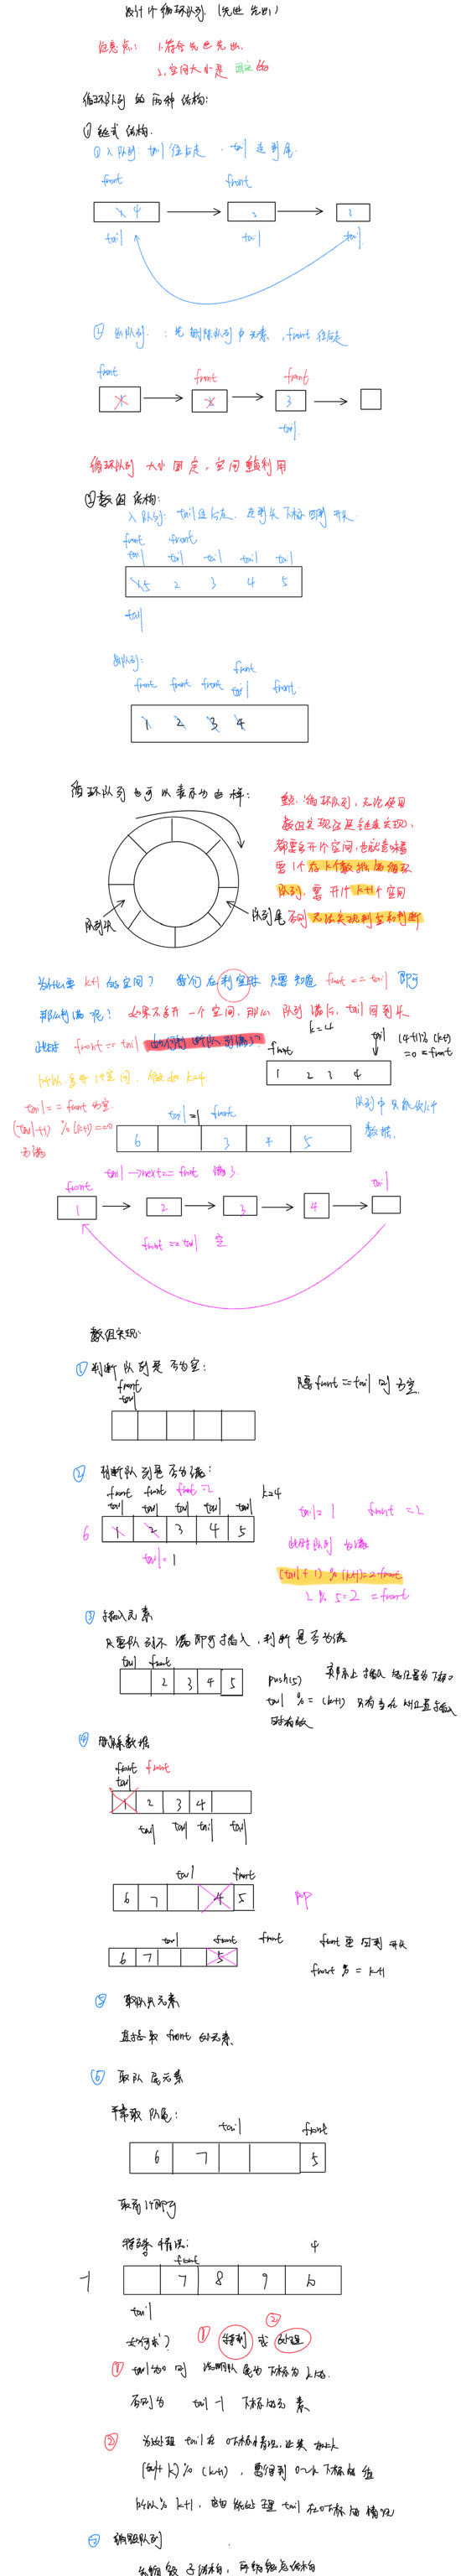 设计个循环队列 (先进先出)
注意点: 1.符合先进先出.
2.空间大小是固定的
循环队列的两种结构:
① 链式结构.
① 入队列: tail往后走. tail走到尾.
front front
4 2 3
tail tail tail
② 出队列: 先删除队列中元素, front往后走
front front front
3
tail
循环队列 大小固定, 空间重复利用
② 数组结构:
入队列: tail往后走. 走到头下标回到开头.
front front
tail tail tail tail tail
5 2 3 4 5
tail
出队列:
front
front front front tail front
1 2 3 4
循环队列也可以表示为这样:
重点: 循环队列, 无论使用
数组实现还是链表实现,
都要多开1个空间, 也就意味着
要1个存k个数据的循环
队列, 要开k+1个空间
否则无法实现判空和判断
队列头
队列尾
为什么要 k+1 的空间? 我们在判空时 只要知道 front == tail 即可
那么判满呢? 如果不多开一个空间, 那么 队列满后, tail回到头
此时 front == tail 如何判断队列满?
k=4
front tail (4+1)% (k+1)
=0 = front
1 2 3 4
所以, 多开1个空间. 假如 k=4.
tail == front 为空.
(tail+1) % (k+1) ==0
为满
tail=1 front
6 3 4 5
队列中只能放4
数据.
tail→next == front 满了
front tail
1 2 3 4
front == tail 空
数组实现:
① 判断队列是否为空:
front
tail
只要front == tail 即为空.
② 判断队列是否为满:
front front front=2 k=4
tail tail tail tail tail
6 1 2 3 4 5
tail=1
tail= 1 front =2
此时队列为满
(tail+1) % (k+1)=2=front
2 % 5=2 = front
③ 插入元素
只要队列不满即可插入, 判断是否为满
tail front
2 3 4 5
push(5)
tail %= (k+1)
④ 删除数据
front front
tail
1 2 3 4
tail tail tail tail
tail front
6 7 4 5 pop
tail front front
6 7 5
front要回到开头
front %= k+1
⑤ 取队头元素
直接取 front 的元素
⑥ 取队尾元素
平常取队尾:
tail front
6 7 5
取前1个即可
特殊情况: 4
front
7 8 9 10
tail
如何求? ① 特判 或 ② 处理
① tail为0时 说明队尾为下标为k的.
否则为 tail-1 下标的元素
②
(tail+k)% (k+1), 要得到0~k下标的值
⑦ 销毁队列